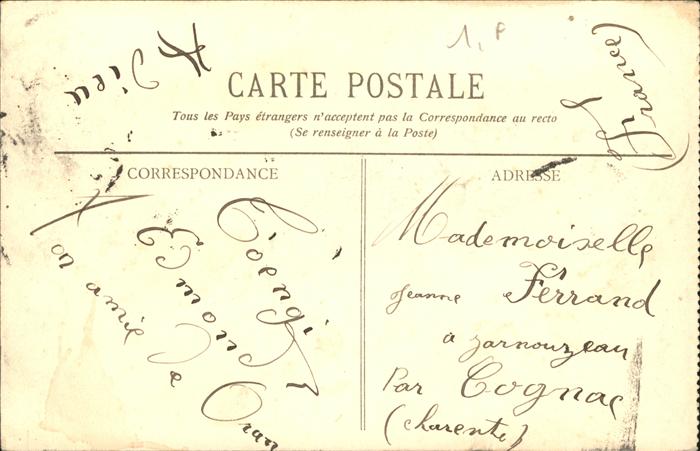 1, F
A Dieu
(France)
CARTE POSTALE
Tous les Pays étrangers n'acceptent pas la Correspondance au recto
(Se renseigner à la Poste)
CORRESPONDANCE
ton amie
Edmond
de Oran
ADRESSE
Mademoiselle
Jeanne Ferrand
à Jarnouzeau
Par Cognac
(Charente)